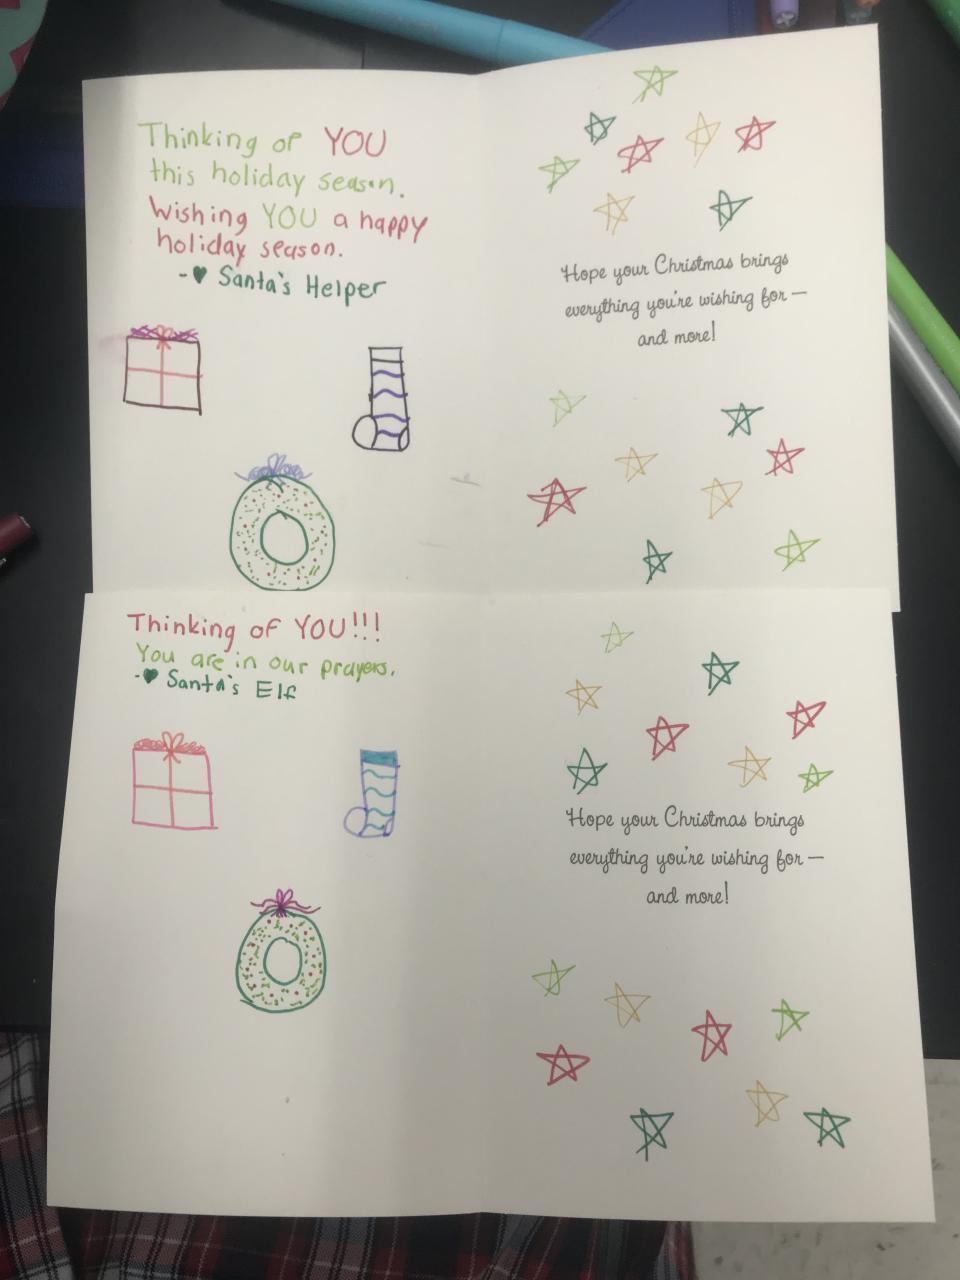 Thinking of YOU
this holiday season.
Wishing YOU a happy
holiday season.
-♥ Santa's Helper
Hope your Christmas brings
everything you're wishing for —
and more!
Thinking of YOU!!!
You are in our prayers.
-♥ Santa's Elf
Hope your Christmas brings
everything you're wishing for —
and more!